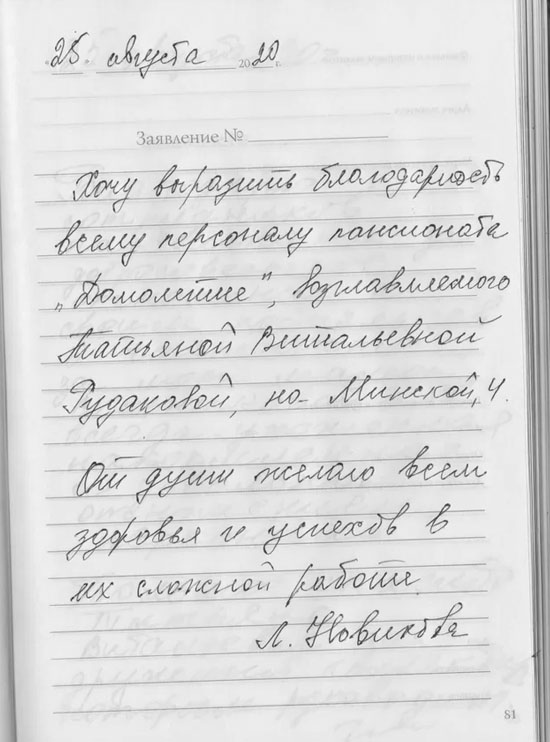 25. августа 2020 г.
Заявление №
Хочу выразить благодарность
всему персоналу пансионата
„Домолетие", возглавляемого
Татьяной Витальевной
Рудаковой, на Минской, 4.
От души желаю всем
здоровья и успехов в
их сложной работе.
Л. Новикова
81